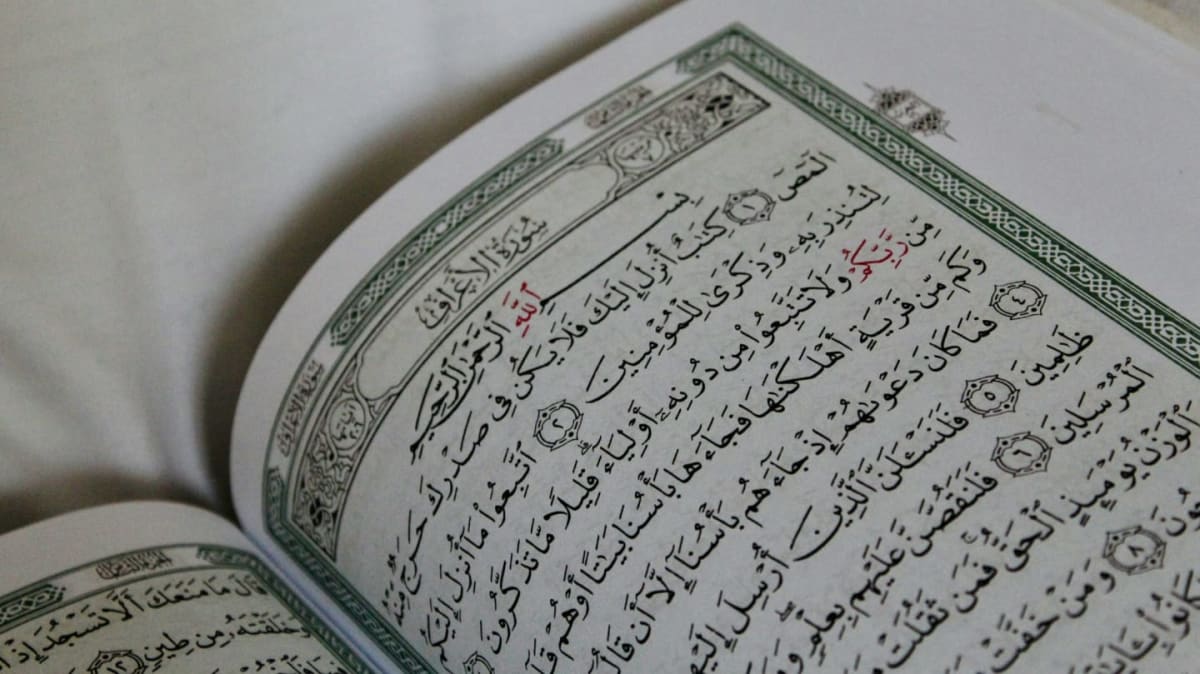 سُورَةُ الأَعْرَافِ
سُورَةُ الأَعْرَافِ
بِسْمِ ٱللَّهِ ٱلرَّحْمَٰنِ ٱلرَّحِيمِ
الٓمٓصٓ ١ كِتَٰبٌ أُنزِلَ إِلَيْكَ فَلَا يَكُن فِى صَدْرِكَ حَرَجٌ مِّنْهُ
لِتُنذِرَ بِهِۦ وَذِكْرَىٰ لِلْمُؤْمِنِينَ ٢ ٱتَّبِعُوا۟ مَآ أُنزِلَ إِلَيْكُم
مِّن رَّبِّكُمْ وَلَا تَتَّبِعُوا۟ مِن دُونِهِۦٓ أَوْلِيَآءَ ۗ قَلِيلًا مَّا تَذَكَّرُونَ
وَكَم مِّن قَرْيَةٍ أَهْلَكْنَٰهَا فَجَآءَهَا بَأْسُنَا بَيَٰتًا أَوْ هُمْ
٤ فَمَا كَانَ دَعْوَىٰهُمْ إِذْ جَآءَهُم بَأْسُنَآ إِلَّآ أَن
ظَٰلِمِينَ ٥ فَلَنَسْـَٔلَنَّ ٱلَّذِينَ أُرْسِلَ
ٱلْمُرْسَلِينَ ٦ فَلَنَقُصَّنَّ عَلَيْهِم بِعِلْمٍ ۖ
وَٱلْوَزْنُ يَوْمَئِذٍ ٱلْحَقُّ ۚ فَمَن ثَقُلَتْ
٨ وَمَنْ خَفَّتْ
قَالَ مَا مَنَعَكَ أَلَّا تَسْجُدَ إِذْ
خَلَقْتَهُۥ مِن طِينٍ ١٢